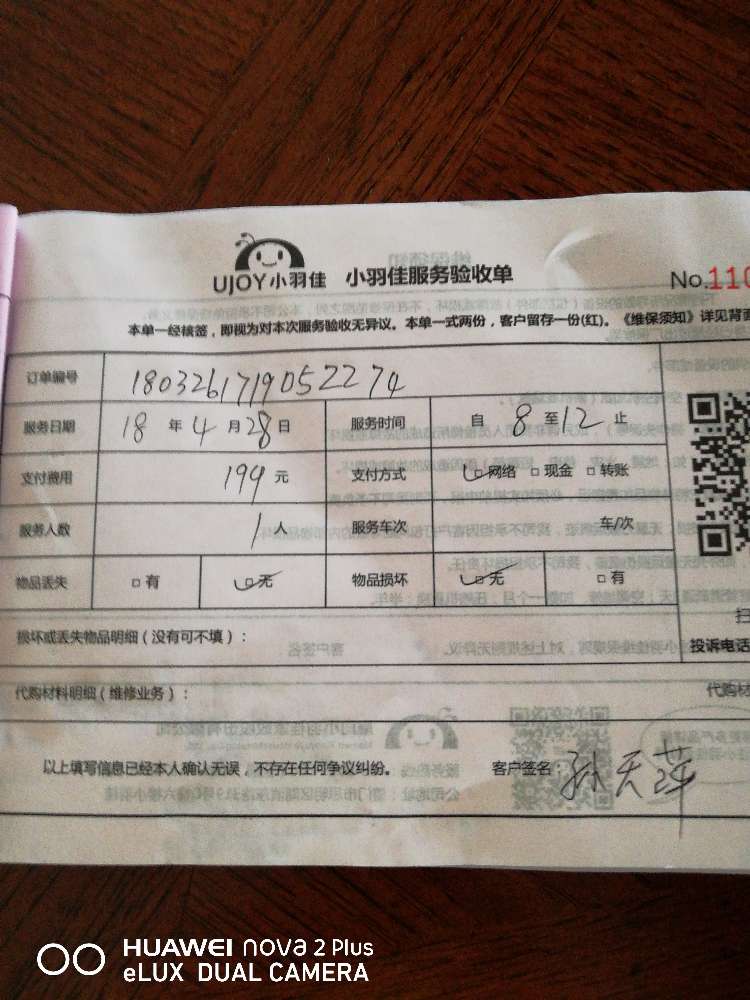 UJOY小羽佳 小羽佳服务验收单 No.110
本单一经核签，即视为对本次服务验收无异议。本单一式两份，客户留存一份(红)。《维保须知》详见背面
订单编号 1803261719052274
服务日期 18 年 4 月 28 日 服务时间 自 8 至 12 止
支付费用 199 元 支付方式 网络 现金 转账
服务人数 1 人 服务车次 车/次
物品丢失 有 无 物品损坏 无 有
损坏或丢失物品明细（没有可不填）：
投诉电话
代购材料明细（维修业务）： 代购材
以上填写信息已经本人确认无误，不存在任何争议纠纷。 客户签名 孙天萍
HUAWEI nova 2 Plus
eLUX DUAL CAMERA